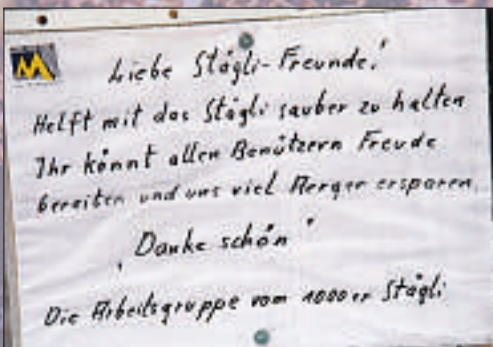 Liebe Stägli-Freunde!
Helft mit das Stägli sauber zu halten
Ihr könnt allen Benützern Freude
bereiten und uns viel Aerger ersparen.
"Danke schön"
Die Arbeitsgruppe vom 1000er Stägli